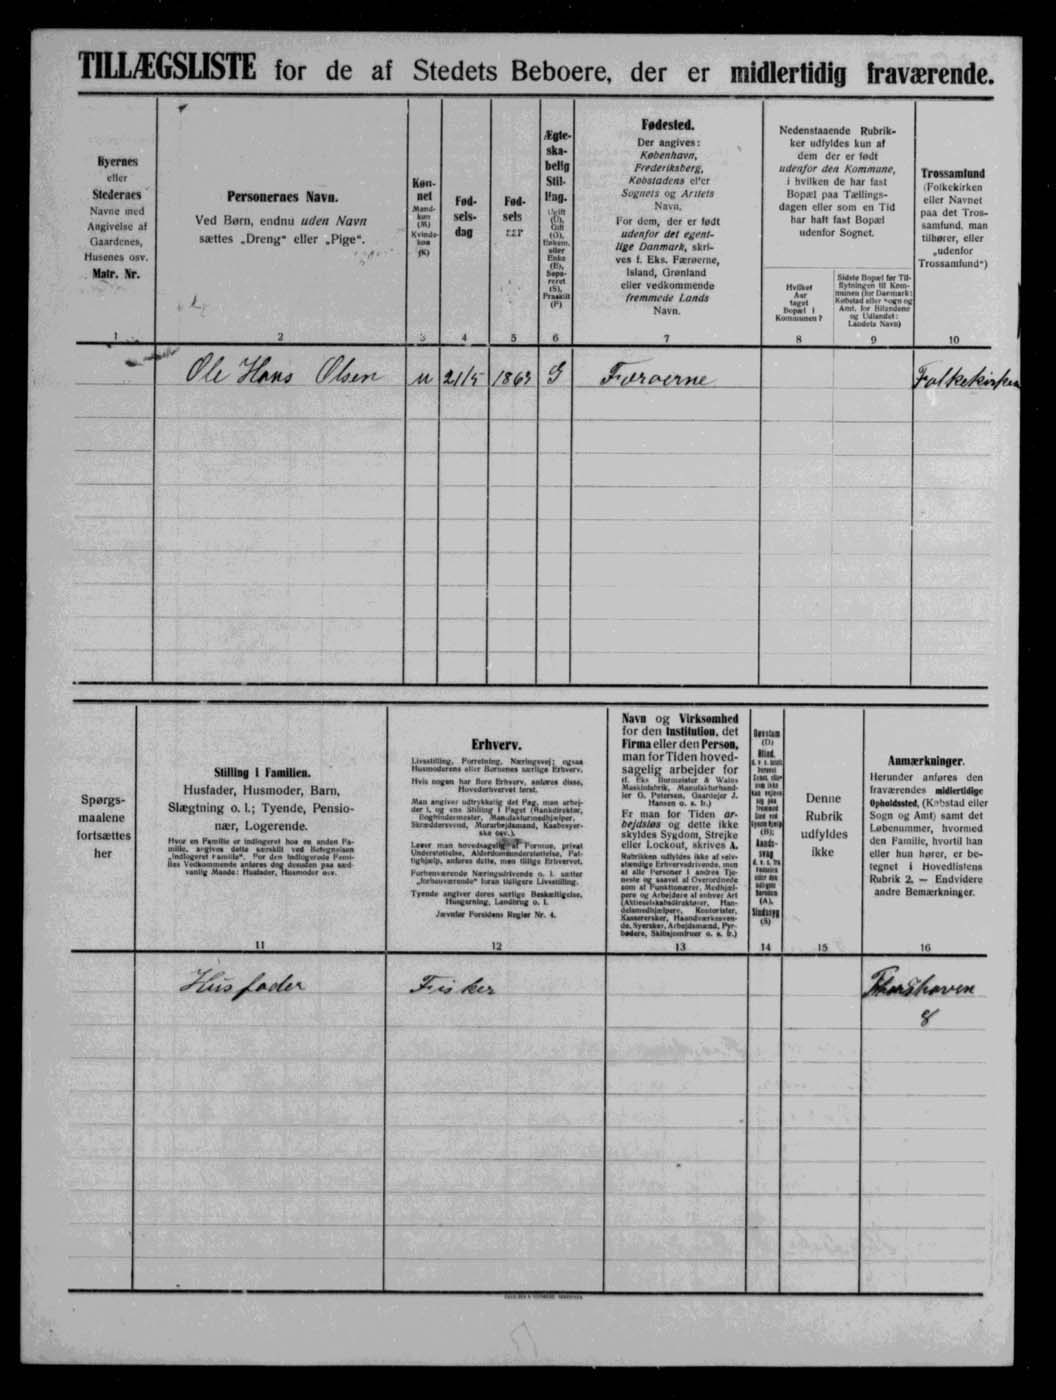 TILLÆGSLISTE for de af Stedets Beboere, der er midlertidig fraværende.
Byernes
eller
Stedernes
Navne med
Angivelse af
Gaardenes,
Husenes osv.
Matr. Nr.
1
Personernes Navn.
Ved Børn, endnu uden Navn
sættes „Dreng“ eller „Pige“.
2
Køn-
net
Mand-
køn
(M)
Kvinde-
køn
(K)
3
Fød-
sels-
dag
4
Fød-
sels
aar
5
Ægte-
ska-
belig
Stil-
ling.
Ugift
(U),
Gift
(G),
Enkem.
eller
Enke
(E),
Sepa-
reret
(S),
Fraskilt
(F)
6
Fødested.
Der angives:
København,
Frederiksberg,
Købstadens eller
Sognets og Amtets
Navn.
For dem, der er født
udenfor det egent-
lige Danmark, skri-
ves f. Eks. Færøerne,
Island, Grønland
eller vedkommende
fremmede Lands
Navn.
7
Nedenstaaende Rubrik-
ker udfyldes kun af
dem der er født
udenfor den Kommune,
i hvilken de har fast
Bopæl paa Tællings-
dagen eller som en Tid
har haft fast Bopæl
udenfor Sognet.
Hvilket
Aar
taget
Bopæl i
Kommunen?
8
Sidste Bopæl før Til-
flytningen til Kom-
munen (for Danmark:
Købstad eller Sogn og
Amt, for Bilandene
og Udlandet:
Landets Navn)
9
Trossamfund
(Folkekirken
eller Navnet
paa det Tros-
samfund, man
tilhører, eller
„udenfor
Trossamfund“)
10
Ole Hans Olsen M 21/5 1863 G Færøerne Folkekirken
Spørgs-
maalene
fortsættes
her
Stilling i Familien.
Husfader, Husmoder, Barn,
Slægtning o. l.; Tyende, Pensio-
nær, Logerende.
Hvor en Familie er indlogeret hos en anden Fa-
milie, angives dette særskilt ved Betegnelsen
„Indlogeret Familie“. For den indlogerede Fami-
lies Vedkommende anføres dog desuden paa sæd-
vanlig Maade: Husfader, Husmoder osv.
11
Erhverv.
Livsstilling, Forretning, Næringsvej; ogsaa
Husmoderens eller Børnenes særlige Erhverv.
Hvis nogen har flere Erhverv, anføres disse,
Hovederhvervet først.
Man angiver udtrykkelig det Fag, man arbej-
der i, og ens Stilling i Faget (Bankdirektør,
Bogbindermester, Manufakturmedhjælper,
Skræddersvend, Murarbejdsmand, Kaabesyer-
ske osv.).
Lever man hovedsagelig af Formue, privat
Understøttelse, Alderdomsunderstøttelse, Fat-
tighjælp, anføres dette, men tillige Erhvervet.
Forhenværende Næringsdrivende o. l. sætter
„forhenværende“ foran tidligere Livsstilling.
Tyende angiver deres særlige Beskæftigelse,
Husgerning, Landbrug o. l.
Jævnfør Forsidens Regler Nr. 4.
12
Navn og Virksomhed
for den Institution, det
Firma eller den Person,
man for Tiden hoved-
sagelig arbejder for
(f. Eks. Burmeister & Wains
Maskinfabrik, Manufakturhand-
ler G. Petersen, Gaardejer J.
Hansen o. s. fr.)
Er man for Tiden ar-
bejdsløs og dette ikke
skyldes Sygdom, Strejke
eller Lockout, skrives A.
Rubrikken udfyldes ikke af selv-
stændige Erhvervsdrivende, men
af alle Personer i andres Tje-
neste og saavel af Overordnede
som af Funktionærer, Medhjæl-
pere og Arbejdere af enhver Art
(Aktieselskabsdirektører, Han-
delsmedhjælpere, Kontorister,
Kasserersker, Haandværkssven-
de, Syersker, Arbejdsmænd, Fyr-
bødere, Skibsjomfruer o. s. fr.)
13
Døvstum
(D)
Blind,
(B);
Aands-
svag
(A),
Sindssyg
(S)
14
Denne
Rubrik
udfyldes
ikke
15
Anmærkninger.
Herunder anføres den
fraværendes midlertidige
Opholdssted, (Købstad eller
Sogn og Amt) samt det
Løbenummer, hvormed
den Familie, hvortil han
eller hun hører, er be-
tegnet i Hovedlistens
Rubrik 2. — Endvidere
andre Bemærkninger.
16
Husfader Fisker Thorshavn
8